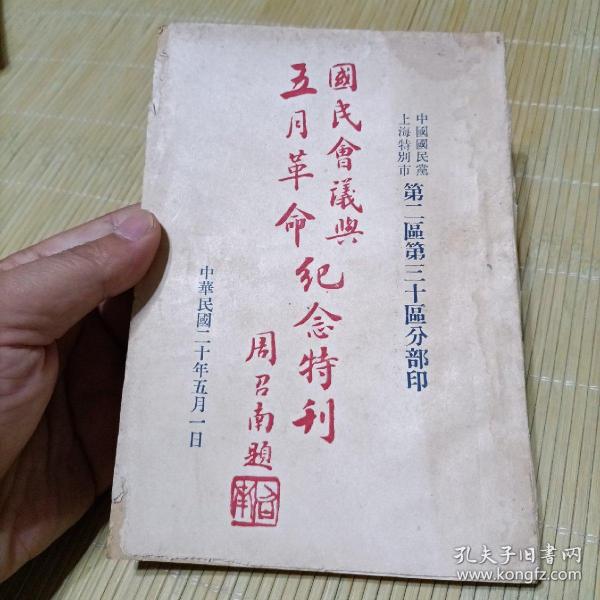 中國國民黨
上海特別市
第二區第三十區分部印
國民會議與
五月革命紀念特刊
周召南題
召南
中華民國二十年五月一日
孔夫子旧书网
www.kongfz.com